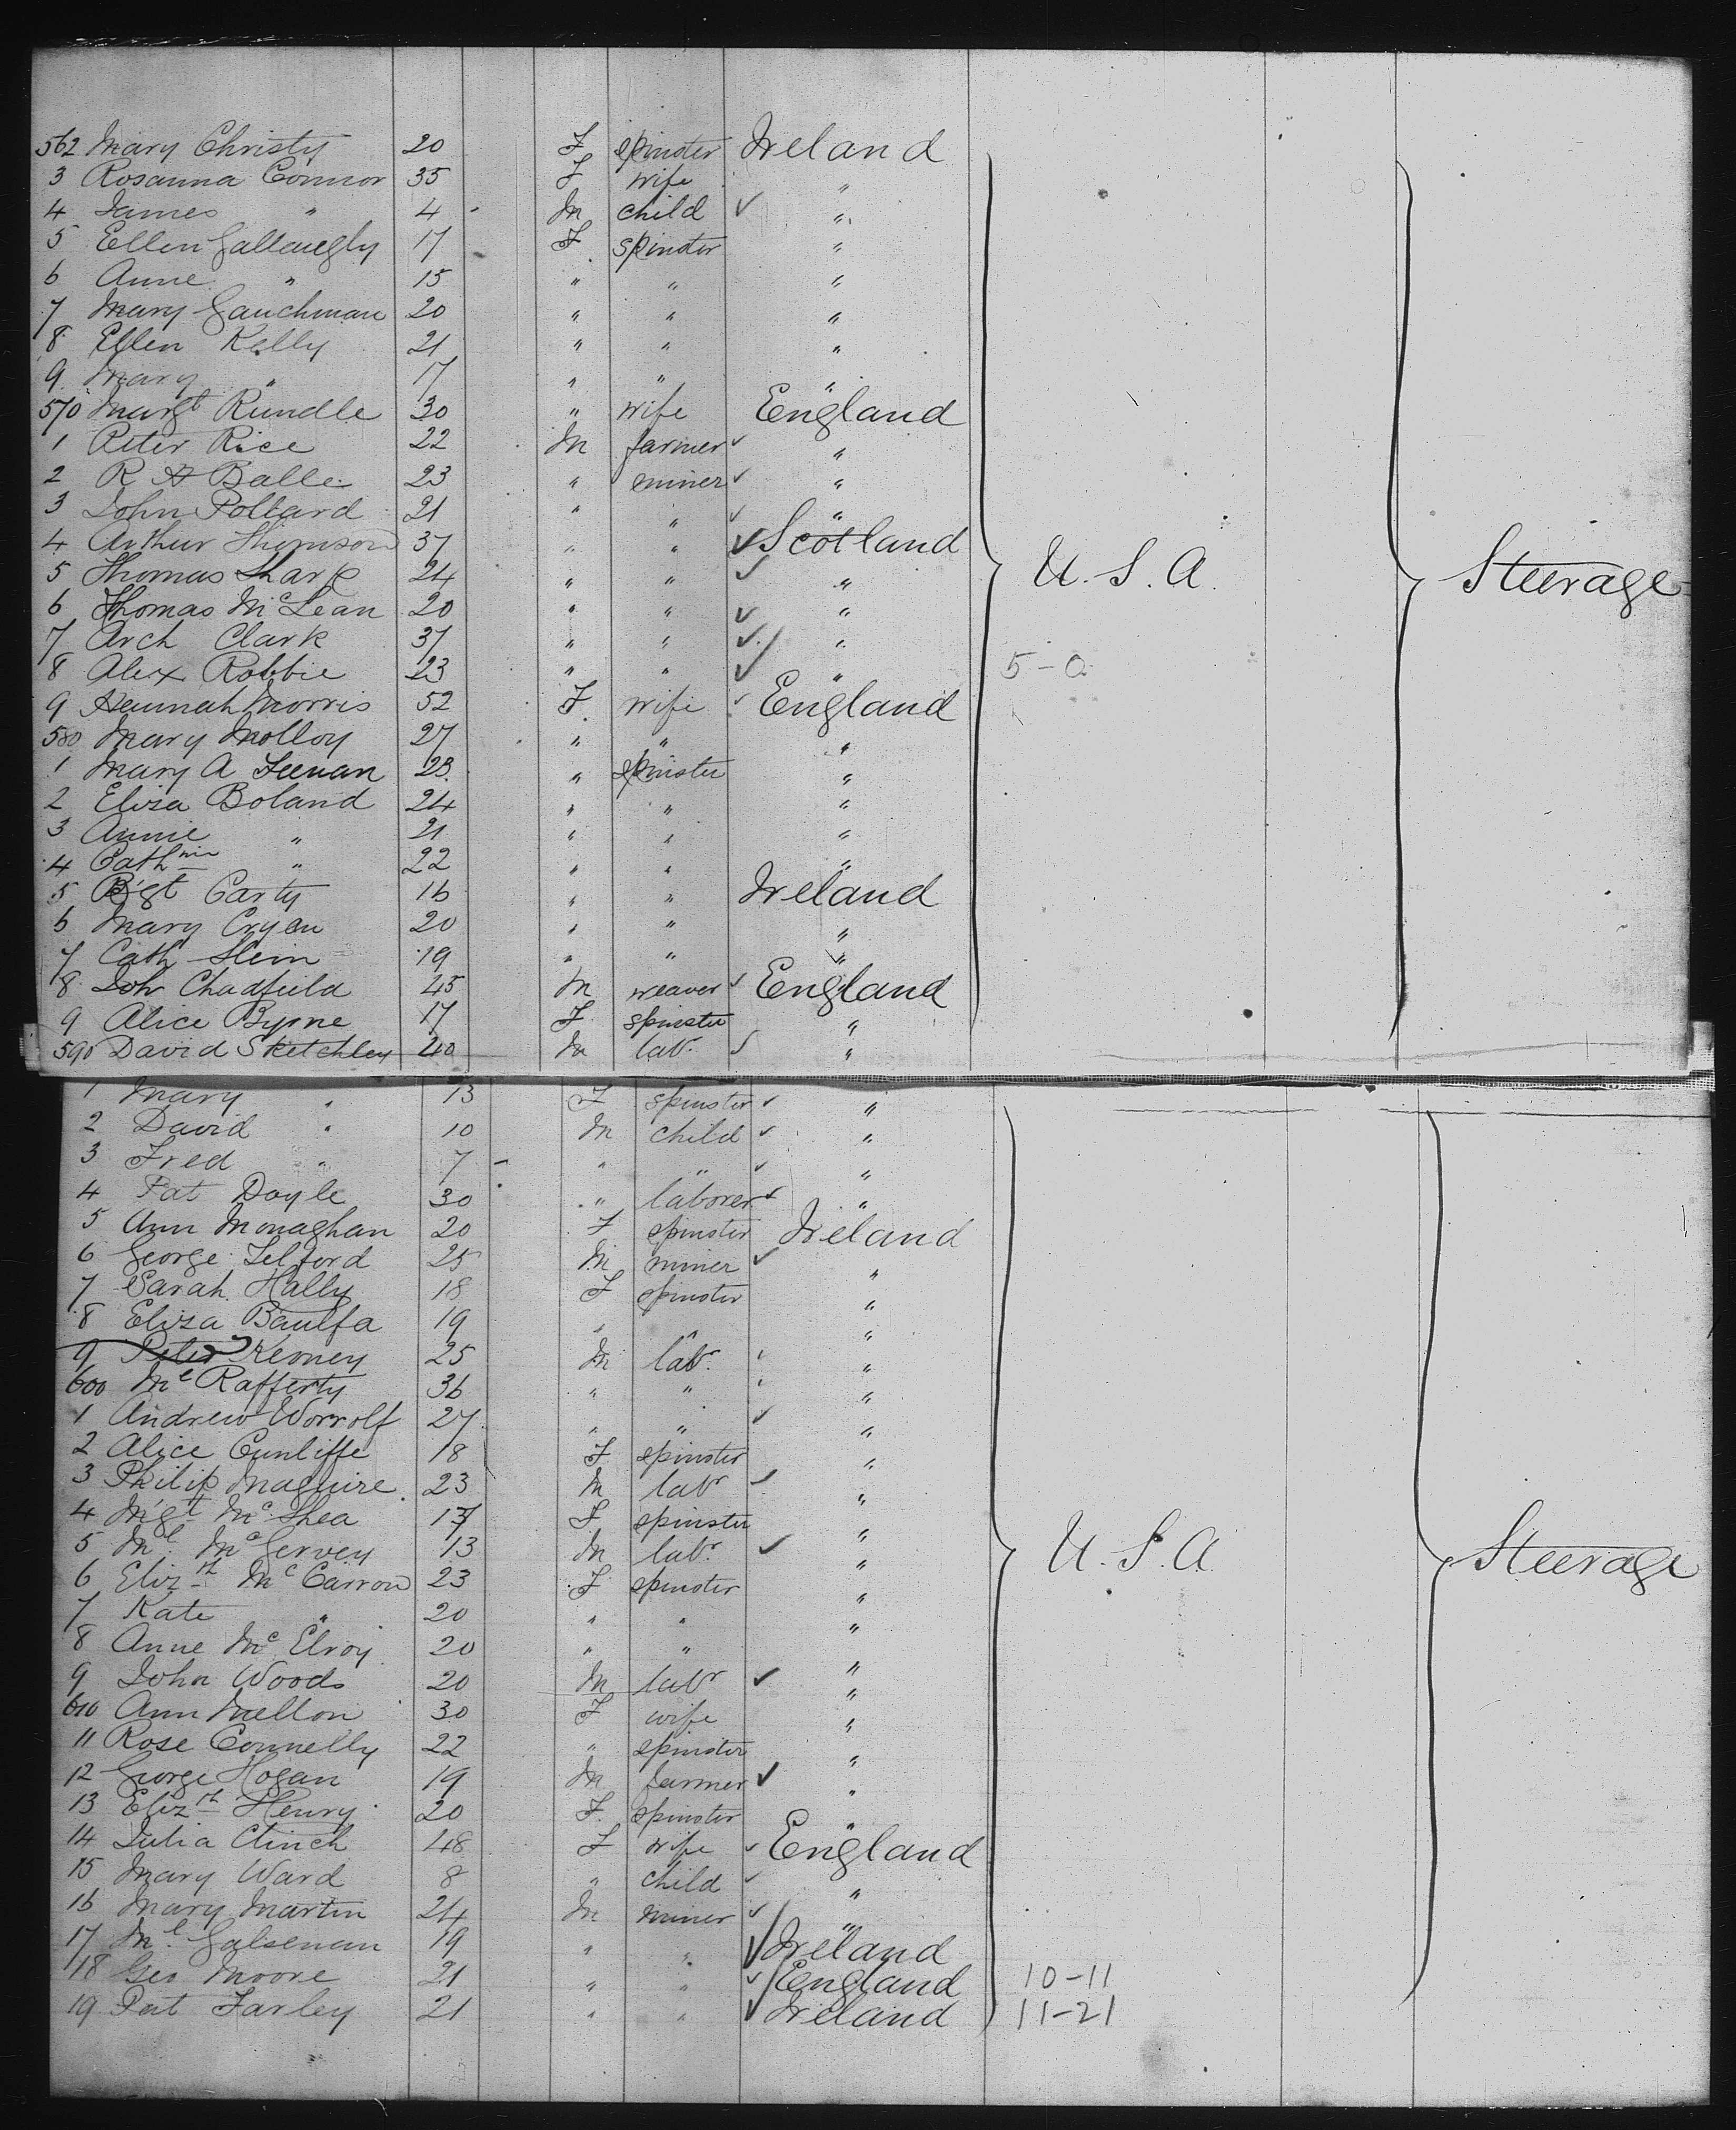 562 Mary Christy 20 F spinster Ireland
3 Rosanna Connor 35 F wife "
4 James " 4 - M child ✓ "
5 Ellen Gallaugly 17 F spinster "
6 Anne " 15 " " "
7 Mary Gauchman 20 " " "
8 Ellen Kelly 21 " " "
9 Mary " 17 " " "
570 Margt Rundle 30 " wife England
1 Peter Rice 22 M farmer ✓ "
2 R H Balle 23 " miner ✓ "
3 John Pollard 21 " " ✓ "
4 Arthur Thomson 37 " " ✓ Scotland
5 Thomas Sharp 24 " " ✓ " U.S.A. Steerage
6 Thomas McLean 20 " " ✓ "
7 Arch Clark 37 " " ✓ "
8 Alex Robbie 23 " " ✓ " 5-0
9 Hannah Morris 52 F wife ✓ England
580 Mary Molloy 27 " " "
1 Mary A Feenan 23 " spinster "
2 Eliza Boland 24 " " "
3 Annie " 21 " " "
4 Cathnie " 22 " " "
5 Bgt Carty 16 " " Ireland
6 Mary Cryan 20 " " "
7 Cath 19 " " "
8 Joh Chadfield 45 M weaver ✓ England
9 Alice Byrne 17 F spinster "
590 David Sketchley 40 M lab. ✓ "
1 Mary " 13 F spinster ✓ "
2 David " 10 M child ✓ "
3 Fred " 7 - " " ✓ "
4 Pat Doyle 30 " laborer ✓ "
5 Ann Monaghan 20 F spinster Ireland
6 George Telford 25 M miner ✓ "
7 Sarah Hally 18 F spinster "
8 Eliza 19 " " "
9 Peter Keoney 25 M lab. ✓ "
600 Ml Rafferty 36 " " ✓ "
1 Andrew Worrolf 27 " " ✓ "
2 Alice Cunliffe 18 F spinster "
3 Philip Maguire 23 M labr ✓ "
4 Mgt McShea 17 F spinster "
5 Ml McGervey 13 M lab. ✓ " U.S.A. Steerage
6 Elizth McCarron 23 F spinster "
7 Kate " 20 " " "
8 Anne McElroy 20 " " "
9 John Woods 20 M labr ✓ "
610 Ann Mellon 30 F wife "
11 Rose Connelly 22 " spinster "
12 George Hogan 19 M farmer ✓ "
13 Elizth Henry 20 F spinster "
14 Julia Clinch 48 F wife ✓ England
15 Mary Ward 8 " child ✓ "
16 Mary Martin 24 M miner ✓ "
17 Ml Galsenan 19 " " ✓ Ireland
18 Geo Moore 21 " " ✓ England 10-11
19 Pat Farley 21 " " ✓ Ireland 11-21